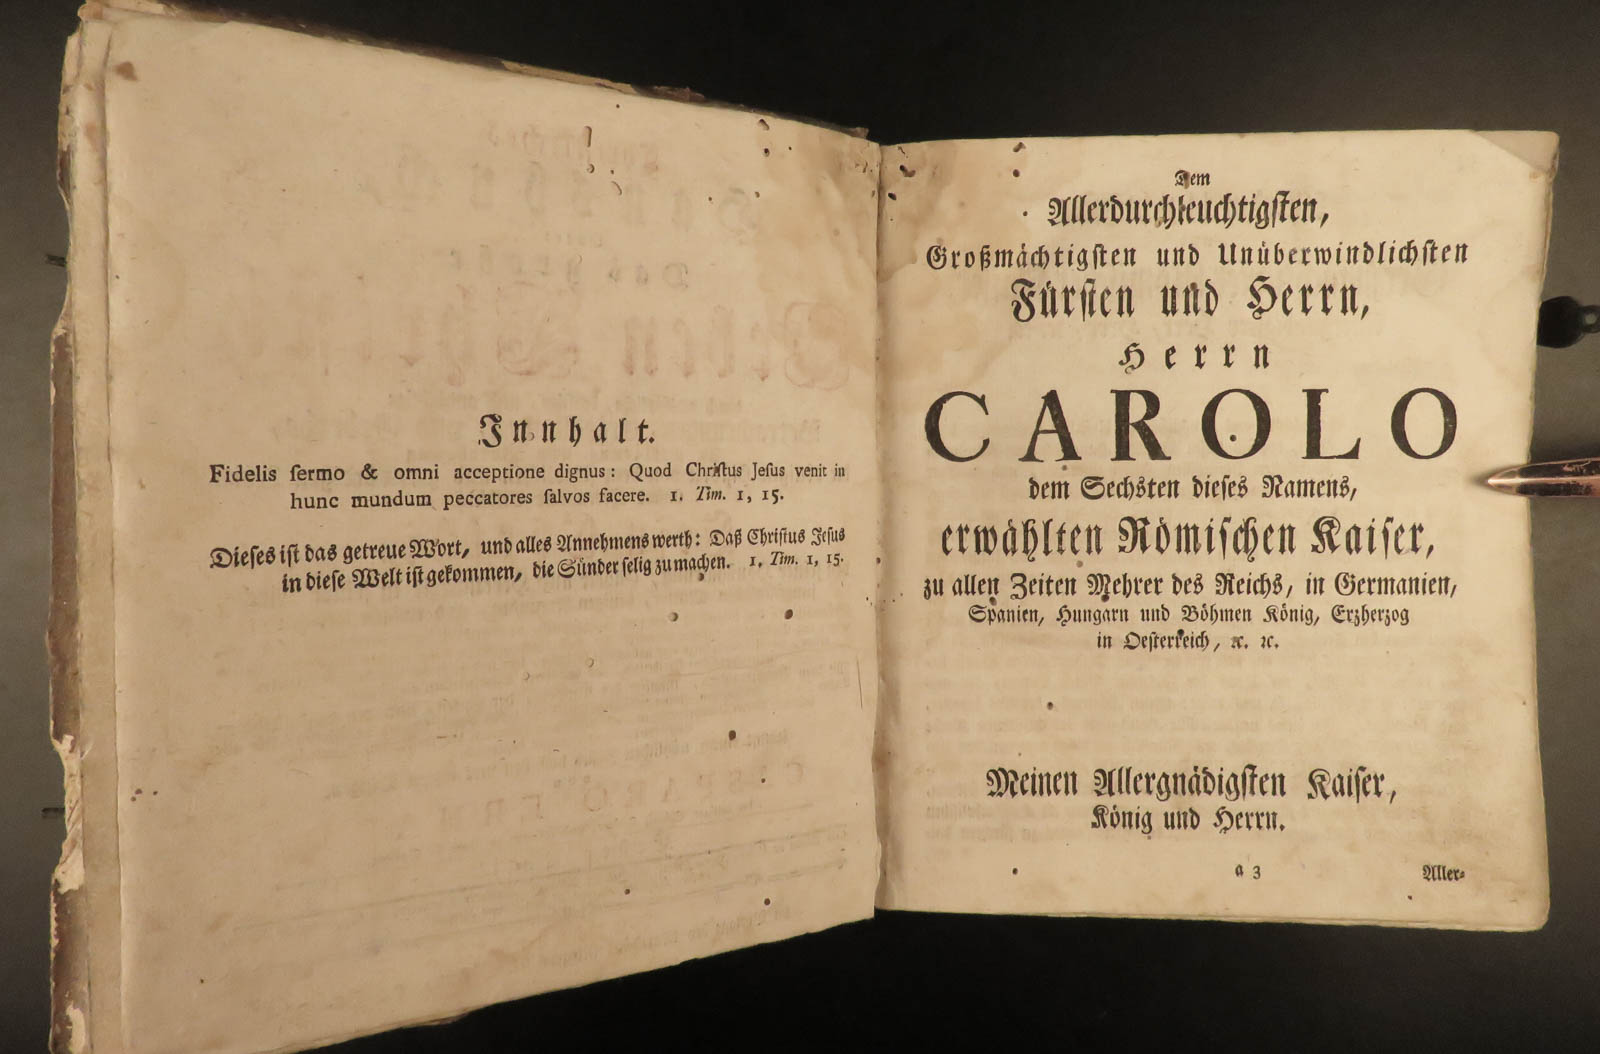 Innhalt.
Fidelis ſermo & omni acceptione dignus: Quod Chriſtus Jeſus venit in
hunc mundum peccatores ſalvos facere. 1. Tim. 1, 15.
Dieſes iſt das getreue Wort, und alles Annehmens werth: Daß Chriſtus Jeſus
in dieſe Welt iſt gekommen, die Sünder ſelig zu machen. 1. Tim. 1, 15.
Dem
Allerdurchleuchtigſten,
Großmächtigſten und Unüberwindlichſten
Fürſten und Herrn,
Herrn
CAROLO
dem Sechsten dieſes Namens,
erwählten Römiſchen Kaiſer,
zu allen Zeiten Mehrer des Reichs, in Germanien,
Spanien, Hungarn und Böhmen König, Erzherzog
in Oeſterreich, ꝛc. ꝛc.
Meinen Allergnädigſten Kaiſer,
König und Herrn.
a 3
Aller-